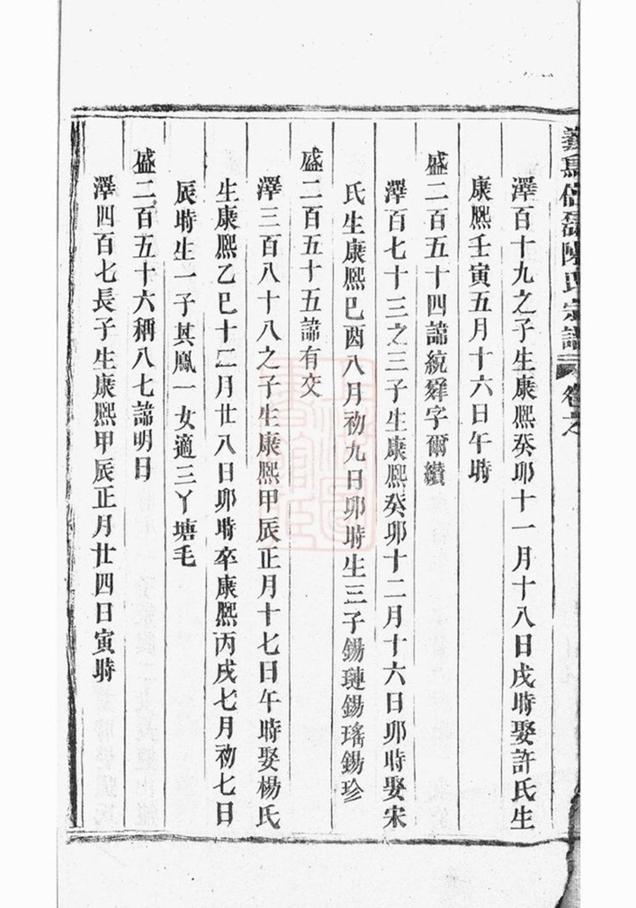 陳氏宗譜 卷之
澤百十九之子生康熙癸卯十一月十八日戌時娶許氏生
康熙壬寅五月十六日午時
盛二百五十四諱統繹字爾纘
澤百七十三之三子生康熙癸卯十二月十六日卯時娶宋
氏生康熙己酉八月初九日卯時生三子錫璉錫瑤錫珍
盛二百五十五諱有交
澤三百八十八之子生康熙甲辰正月十七日午時娶楊氏
生康熙乙巳十二月廿八日卯時卒康熙丙戌七月初七日
辰時生一子其鳳一女適三丫塘毛
盛二百五十六稱八七諱明日
澤四百七長子生康熙甲辰正月廿四日寅時